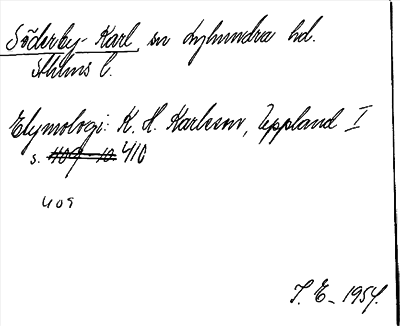 Söderby-Karl sn Lyhundra hd.
Sthlms l.
Etymologi: K. H. Karlsson, Uppland I
s. 409-10 410
409
J. E. 1954.